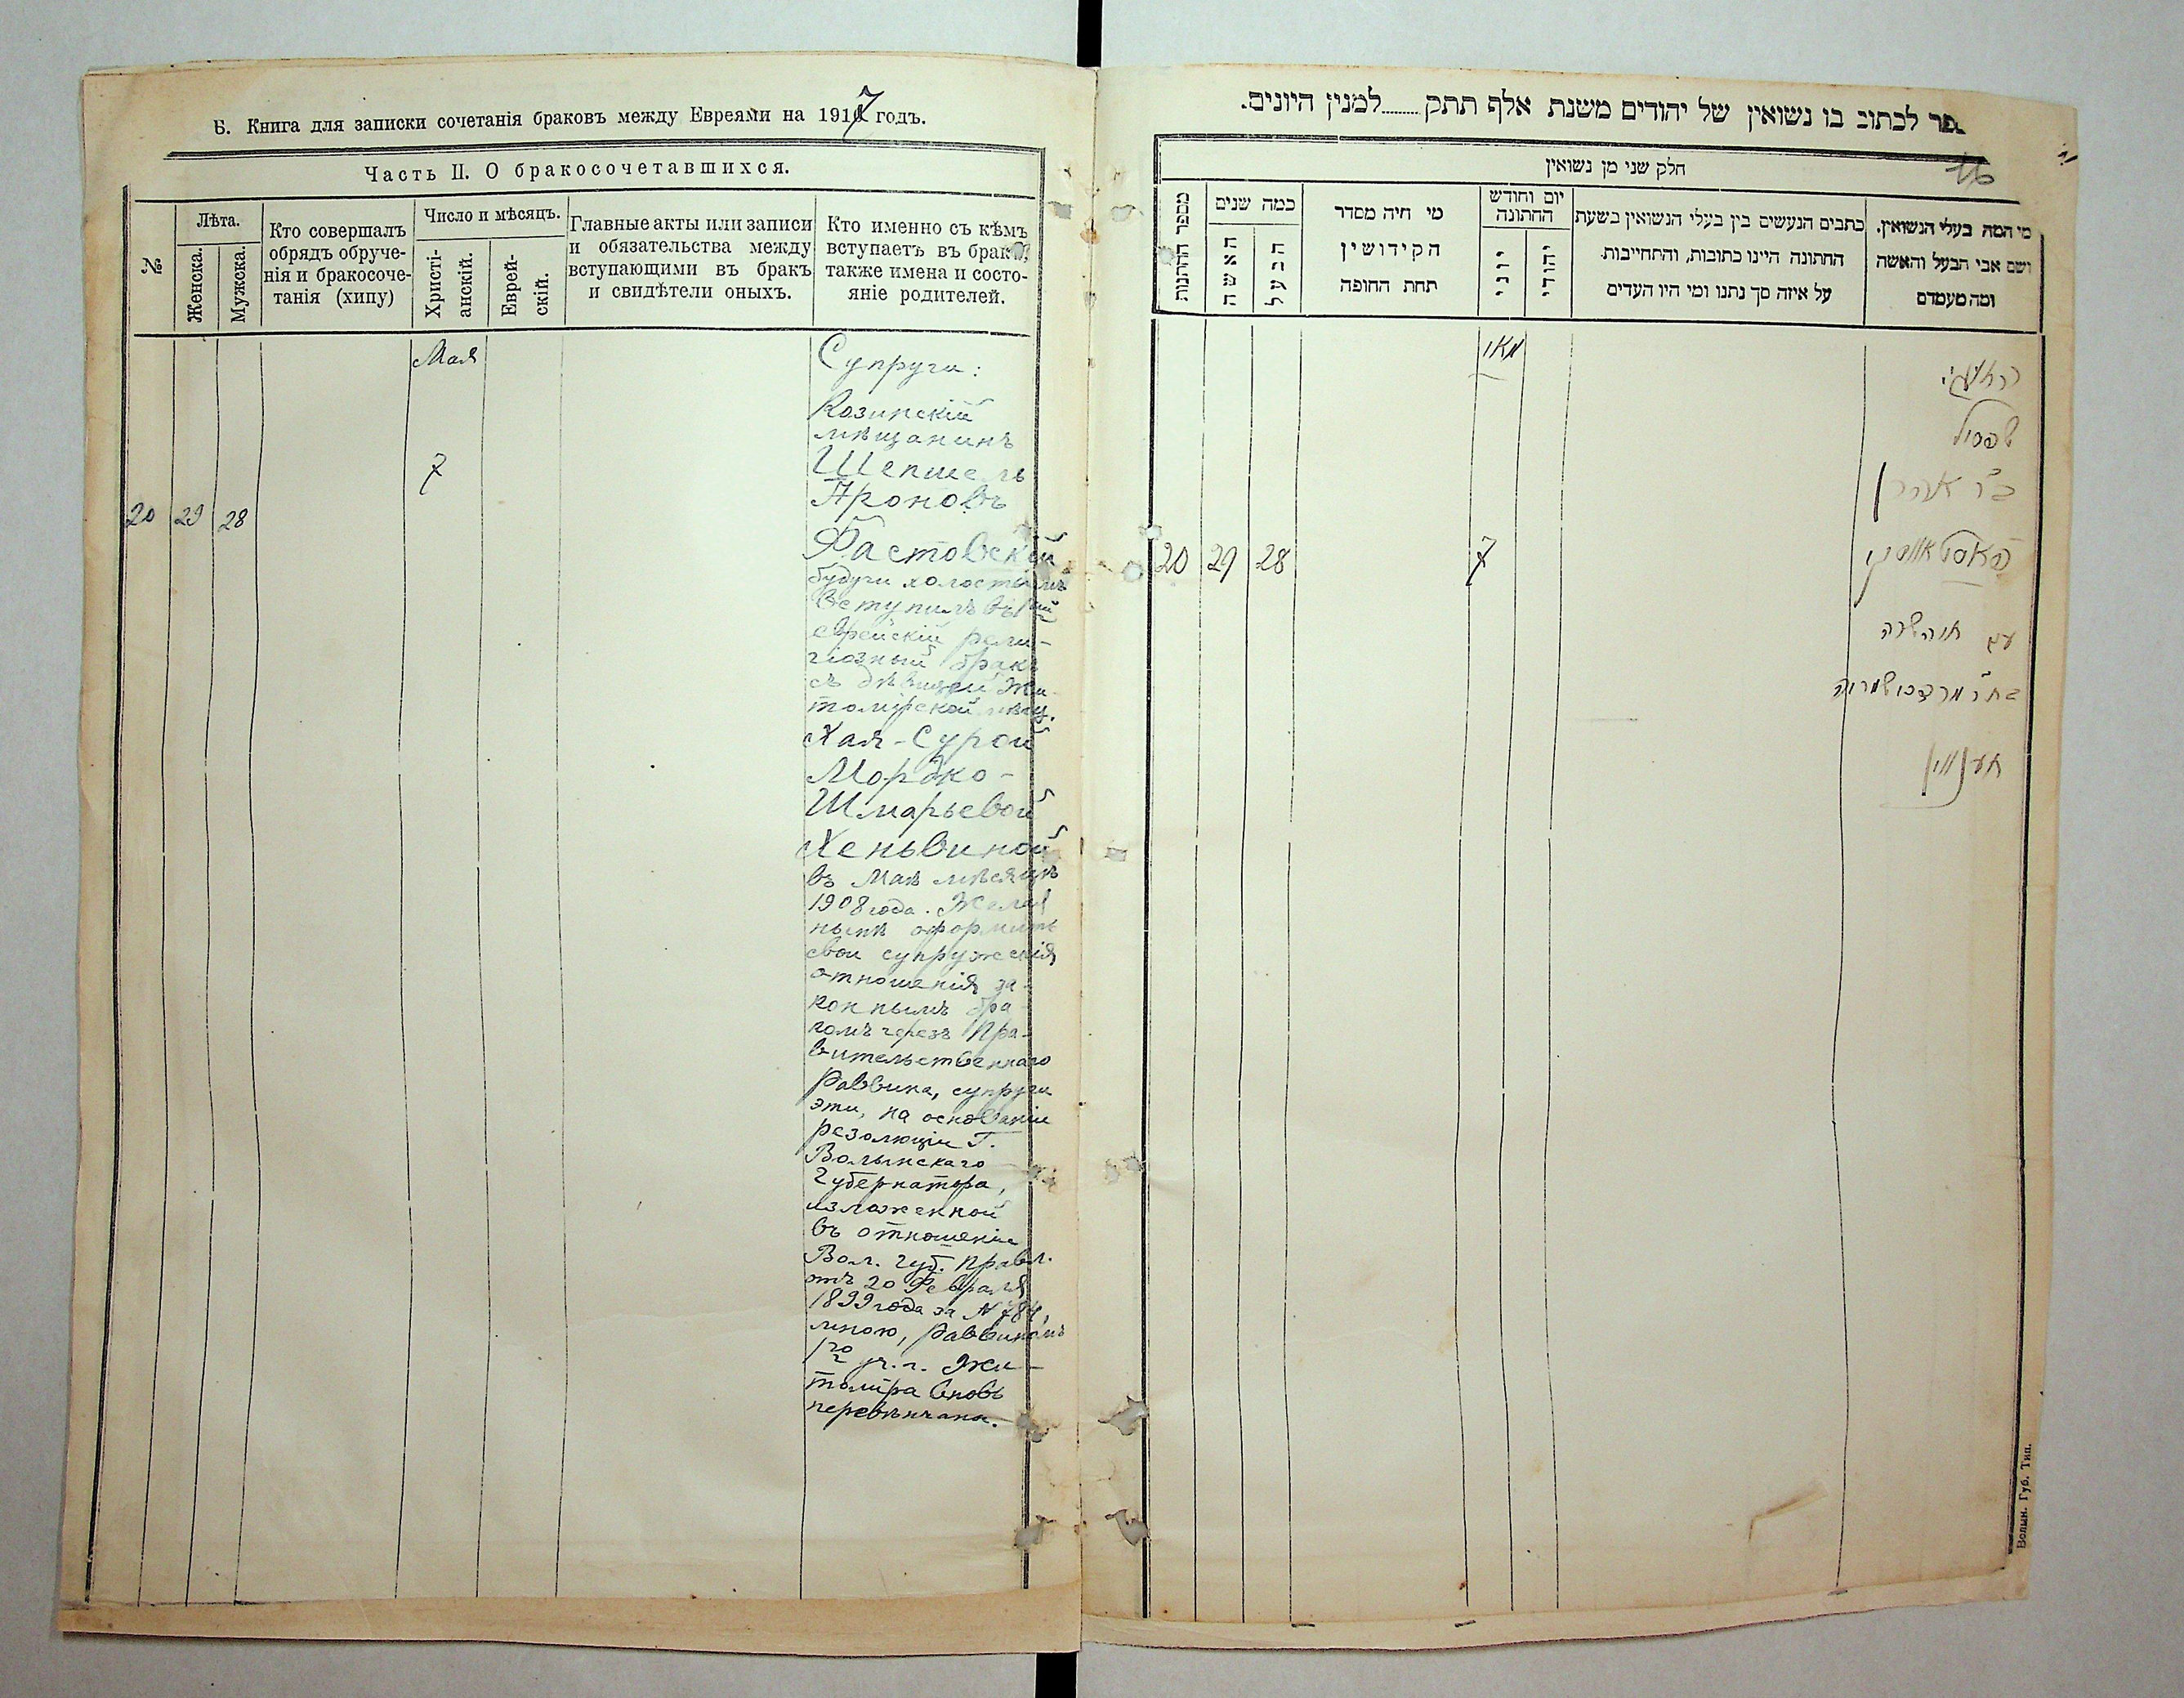 Б. Книга для записки сочетанія браковъ между Евреями на 1917 годъ.
Часть II. О бракосочетавшихся.
№
Лѣта.
Женска.
Мужска.
Кто совершалъ
обрядъ обруче-
нія и бракосоче-
танія (хипу)
Число и мѣсяцъ.
Христі-
анскій.
Еврей-
скій.
Главные акты или записи
и обязательства между
вступающими въ бракъ
и свидѣтели оныхъ.
Кто именно съ кѣмъ
вступаетъ въ бракъ,
также имена и состо-
яніе родителей.
20
29
28
Мая
7
Супруги:
Козинскій
мѣщанинъ
Шепшель
Ароновъ
Фастовскій
будучи холостымъ
вступилъ въ
еврейскій рели-
гіозный бракъ
съ дѣвицей Жи-
томірской мѣщ.
Хая-Сурой
Мордко-
Шмарьевой
Хеньвиной
въ Маѣ мѣсяцѣ
1908 года. Желая
нынѣ оформить
свои супружескія
отношенія за-
коннымъ бра-
комъ черезъ Пра-
вительственнаго
Раввина, супруги
эти, на основаніи
резолюціи Г.
Волынскаго
Губернатора,
изложенной
въ отношеніи
Вол. Губ. Правл.
отъ 20 Февраля
1899 года за № 784,
мною, Раввиномъ
1го уч. г. Жи-
томіра вновь
перевѣнчаны.
פר לכתוב בו נשואין של יהודים משנת אלף תתק........למנין היונים.
16
חלק שני מן נשואין
מספר החתונות
כמה שנים
האשה
הבעל
מי היה מסדר
הקידושין
תחת החופה
יום וחודש
החתונה
יוני
יהודי
כתבים הנעשים בין בעלי הנשואין בשעת
החתונה היינו כתובות, והתחייבות.
על איזה סך נתנו ומי היו העדים
מי המה בעלי הנשואין.
ושם אבי הבעל והאשה
ומה מעמדם
20
29
28
מאי
7
שפסיל
ב״ר אהרן
פאסטאווסקי
עם חיה שרה
בת ר׳ מרדכי שמריה
הענווין
Волын. Губ. Тип.